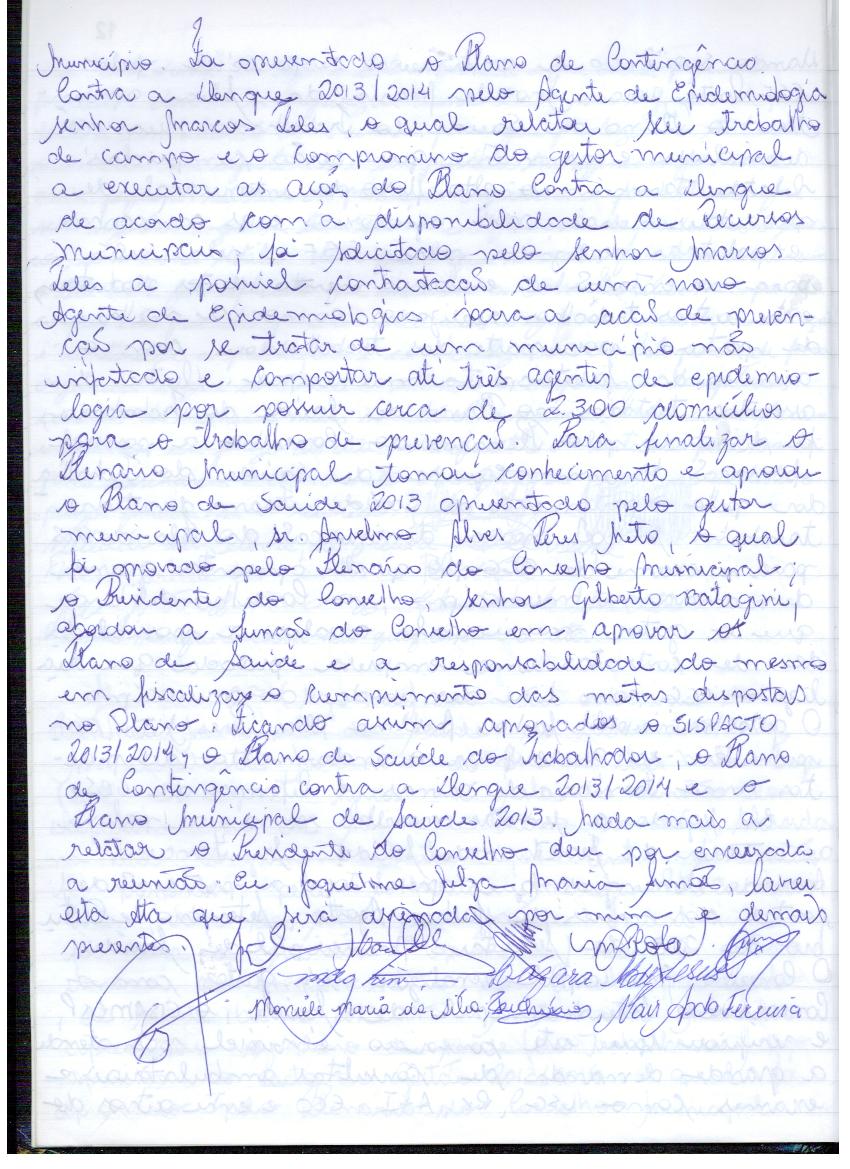 município. Foi apresentado o Plano de Contingência
Contra a Dengue 2013/2014 pelo Agente de Epidemiologia
senhor Marcos Teles, o qual relatou seu trabalho
de campo e o compromisso do gestor municipal
a executar as ações do Plano Contra a Dengue
de acordo com a disponibilidade de Recursos
municipais, foi solicitado pelo senhor Marcos
Teles a possível contratação de um novo
Agente de Epidemiológica para a ação de preven-
ção por se tratar de um município não
infestado e comportar até três agentes de epidemio-
logia por possuir cerca de 2.300 domicílios
para o trabalho de prevenção. Para finalizar o
Plenário Municipal tomou conhecimento e aprovou
o Plano de Saúde 2013 apresentado pelo gestor
municipal, sr. Anselmo Alves Peres Neto, o qual
foi aprovado pelo Plenário do Conselho Municipal;
o Presidente do Conselho, senhor Gilberto
abordou a função do Conselho em aprovar os
Plano de Saúde e a responsabilidade do mesmo
em fiscalizar o cumprimento das metas dispostas
no Plano. Ficando assim aprovados o SISPACTO
2013/2014, o Plano de Saúde do Trabalhador, o Plano
de Contingência contra a Dengue 2013/2014 e o
Plano Municipal de Saúde 2013. Nada mais a
relatar o Presidente do Conselho deu por encerrada
a reunião. Eu, Maria, lavrei
esta Ata que será assinada por mim e demais
presentes.
Lázara de Jesus
Maria da Silva, Nair Apda Ferreira